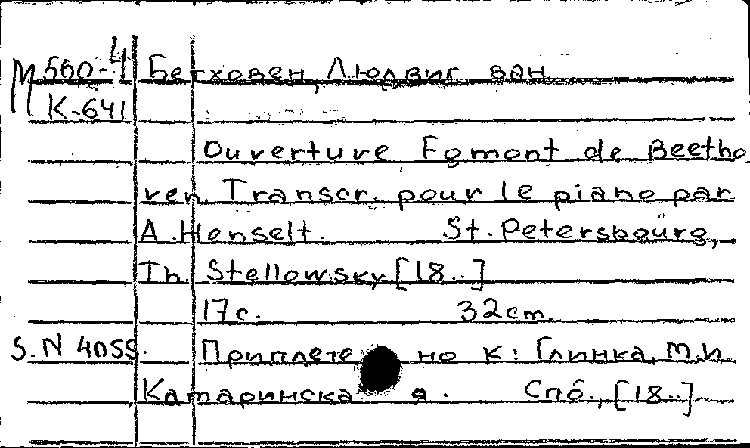 М 560-4 Бетховен, Людвиг ван
К-641
Ouverture Egmont de Beetho
ven. Transcr. pour le piano par
A. Henselt. St. Petersbourg,
Th. Stellowsky [18..]
17с. 32cm.
S. N 4055. Приплетено к: Глинка, М.И.
Камаринская. Спб., [18..]